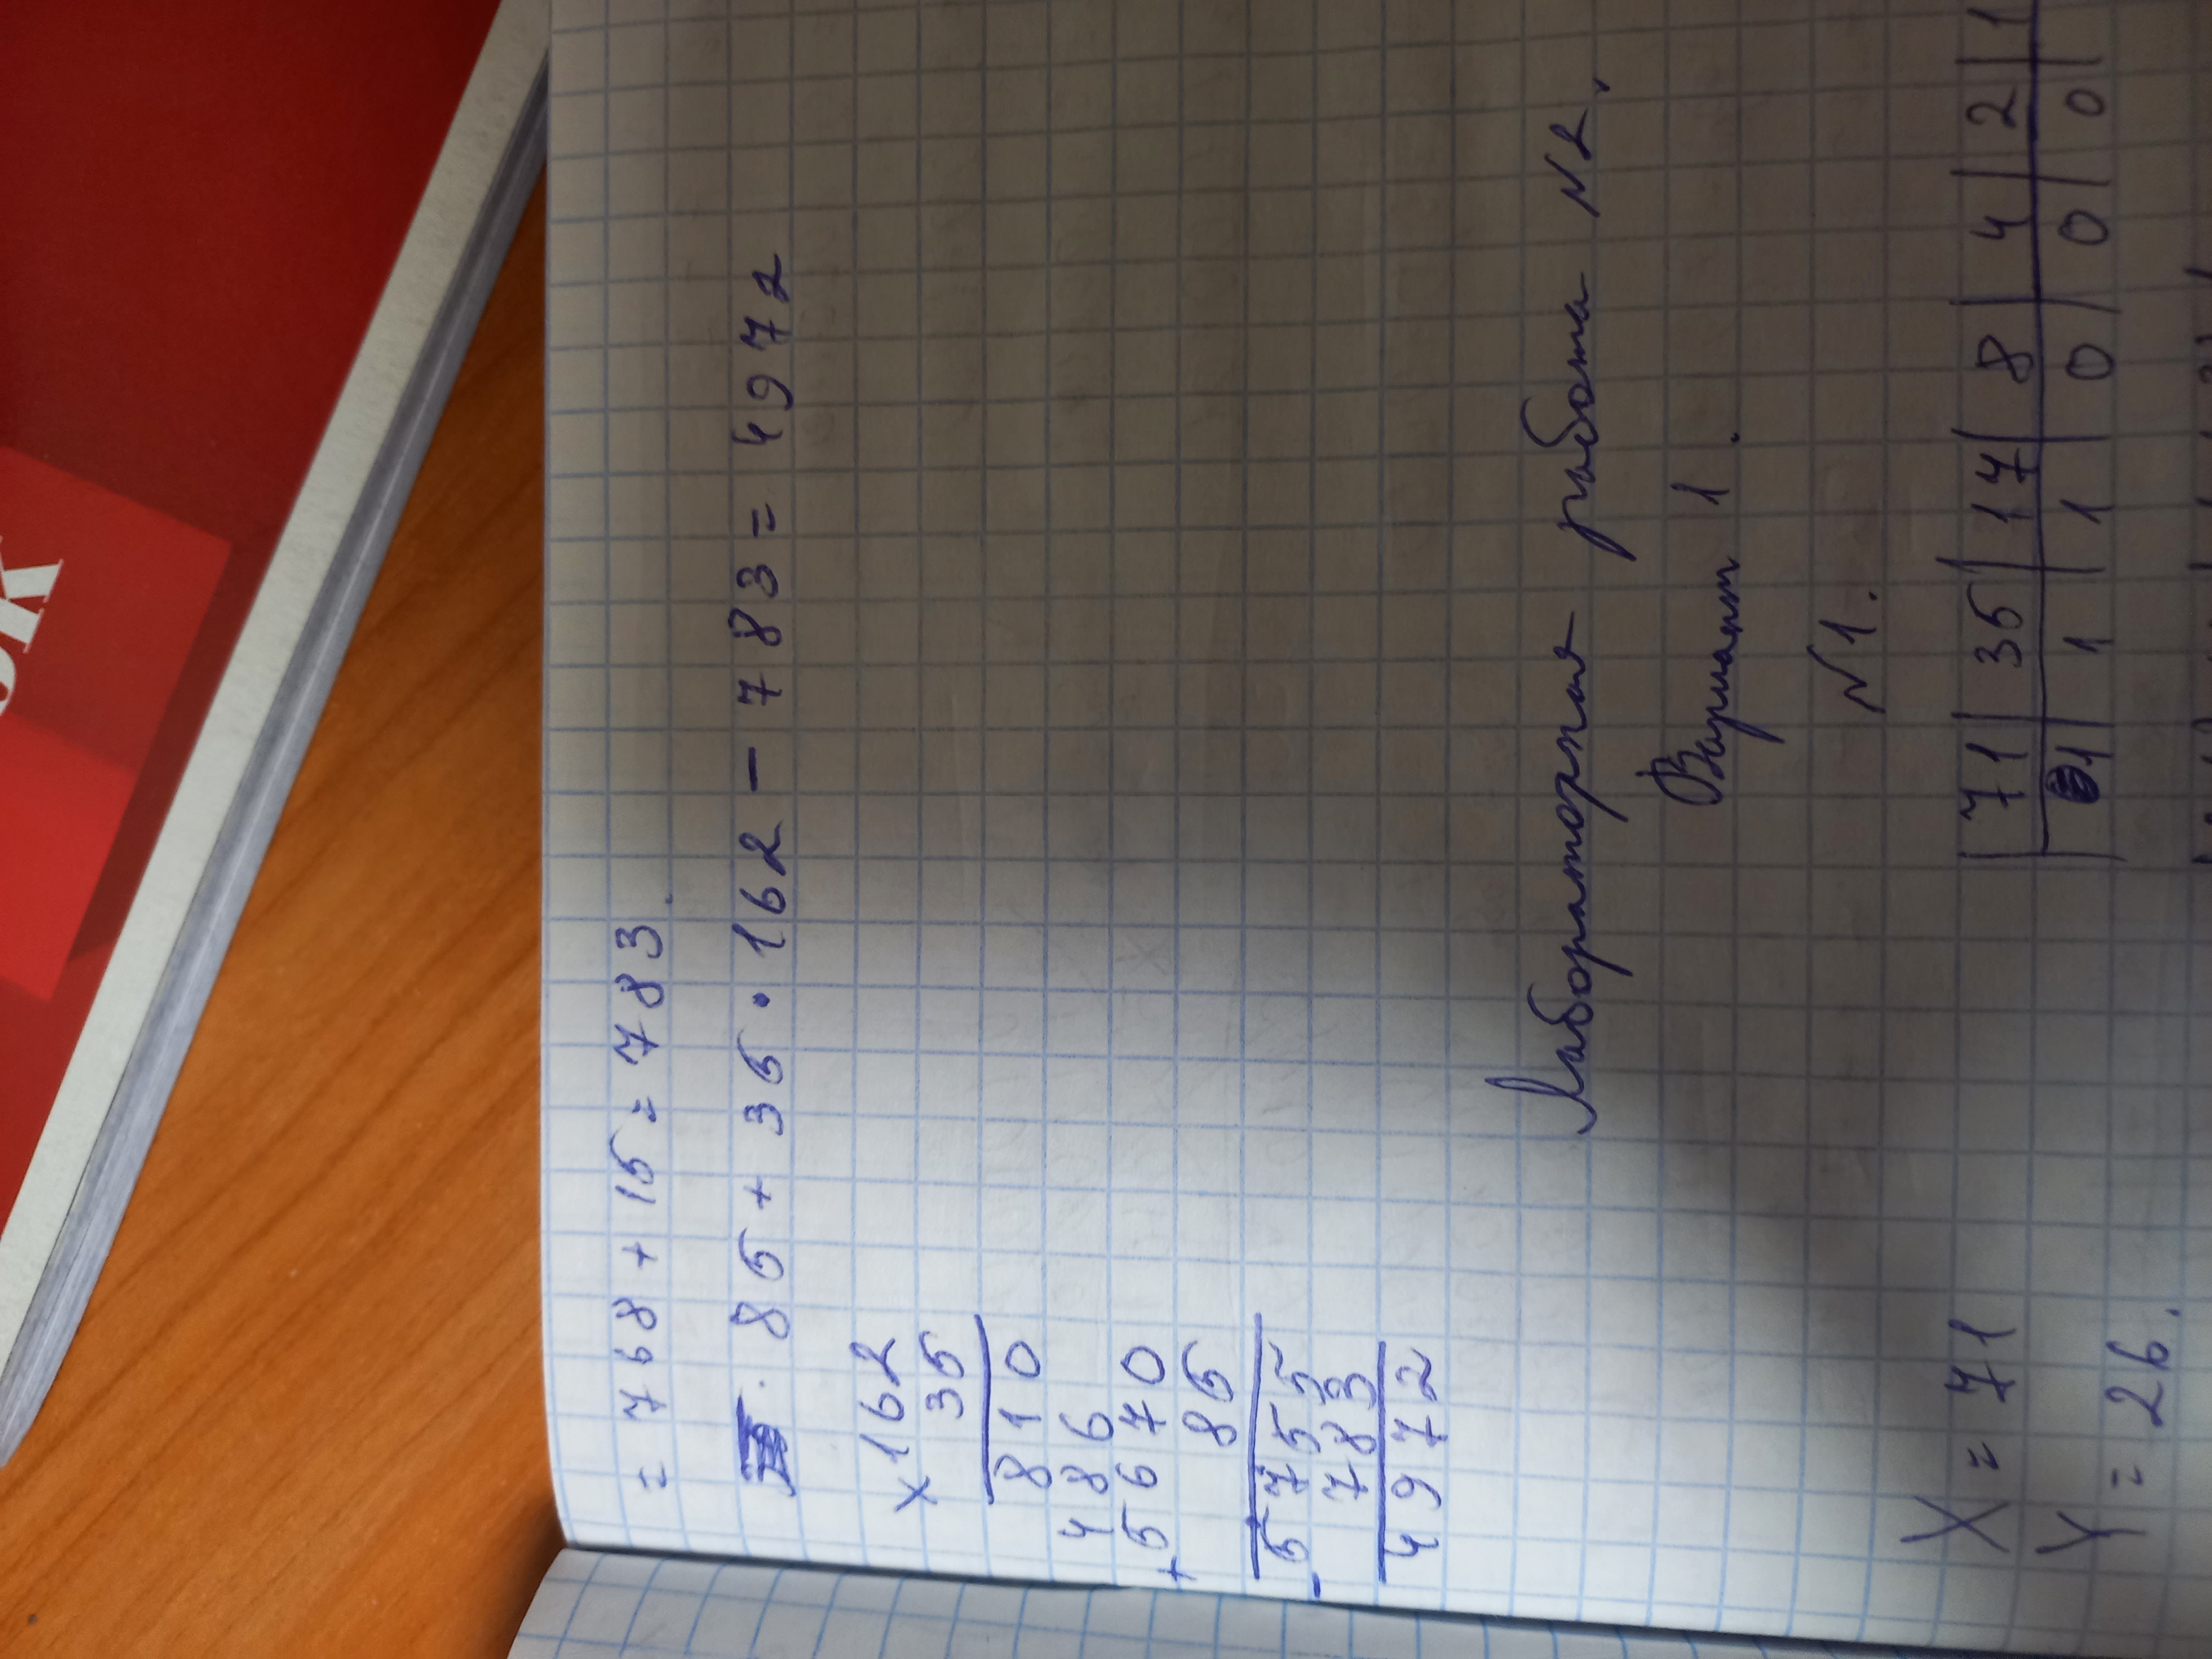 ок
= 768 + 15 = 783.
85 + 35 • 162 - 783 = 4972
x 162
35
810
486
+ 5670
85
- 5755
783
4972
Лабораторная работа №2.
Вариант 1.
№1.
X = 71
| 71 | 35 | 17 | 8 | 4 | 2 | 1
| 1 | 1 | 1 | 0 | 0 | 0 |
Y = 26.